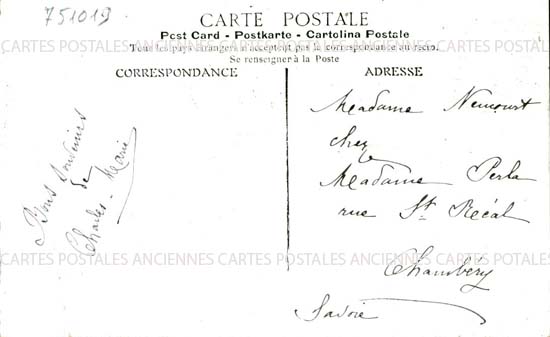 751019
CARTE POSTALE
Post Card - Postkarte - Cartolina Postale
Tous les pays étrangers n'acceptent pas la correspondance au recto.
Se renseigner à la Poste
CORRESPONDANCE
ADRESSE
Bons Souvenirs
de
Charles-Marie
Madame Nemourt
chez
Madame Perla
rue St Réal
Chambéry
Savoie
CARTES POSTALES ANCIENNES CARTES POSTALES ANCIENNES CARTES POSTALES
CARTES POSTALES ANCIENNES CARTES POSTALES ANCIENNES CARTES POSTALES